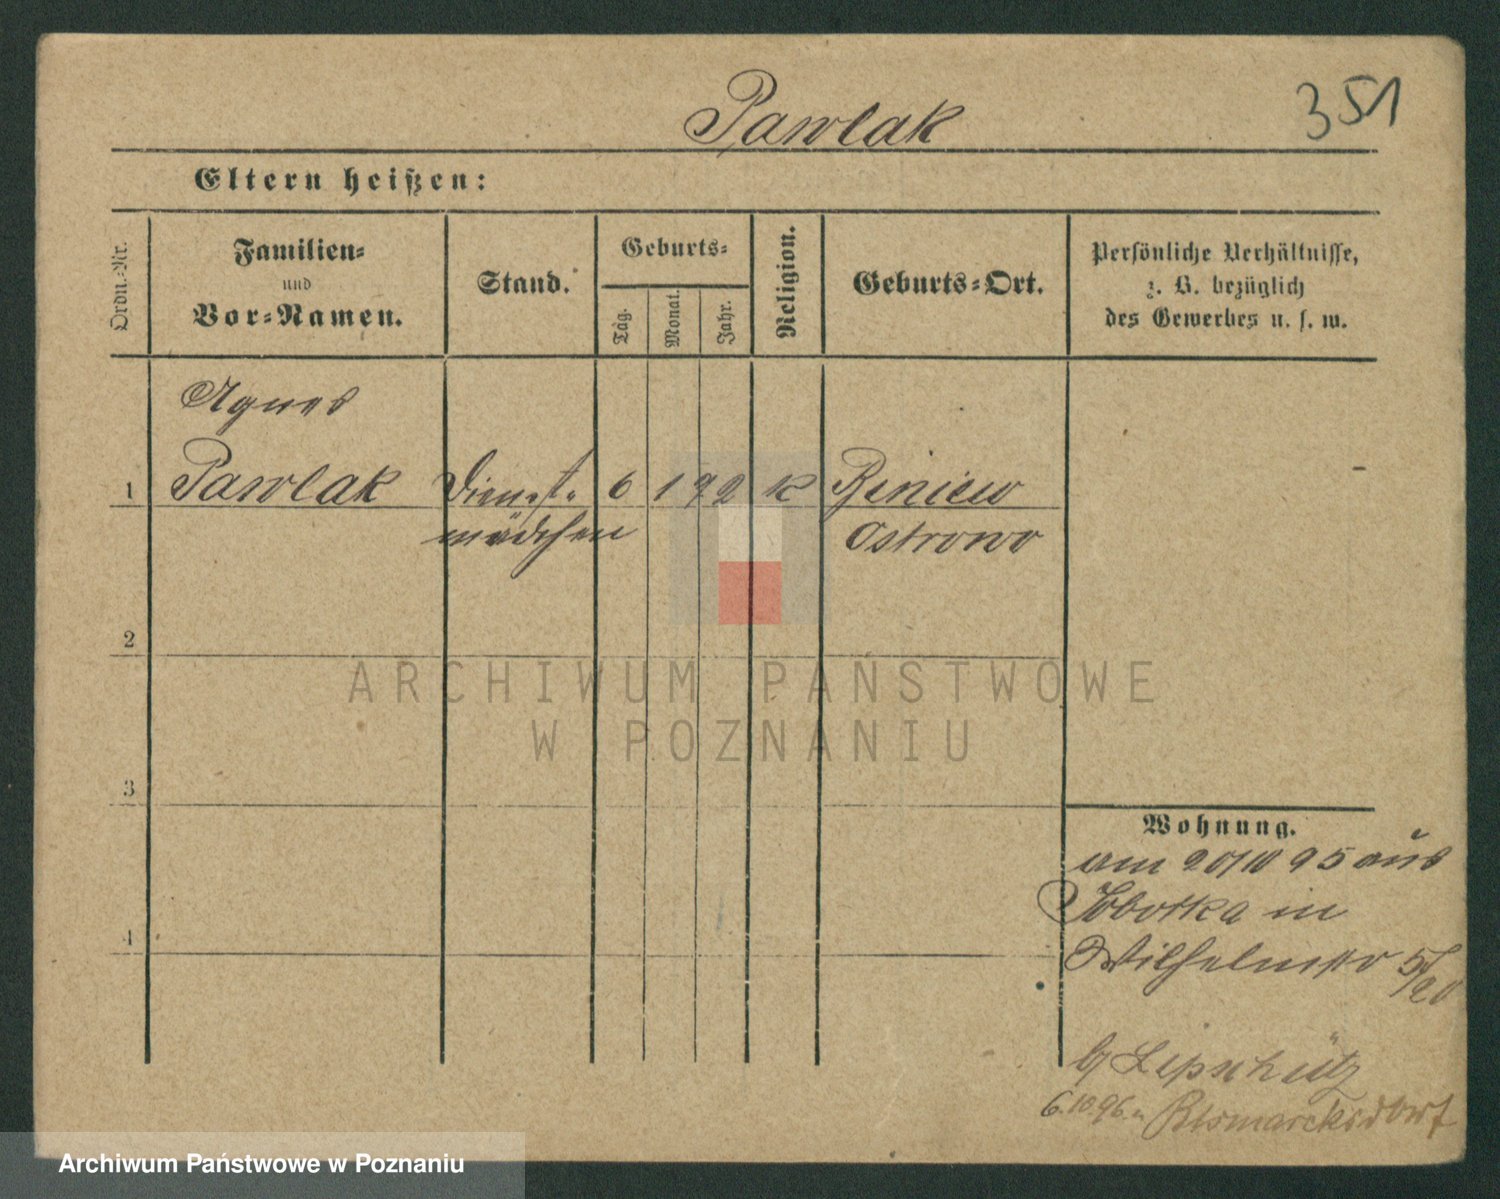 Pawlak
351
Eltern heißen:
Ordn.-Nr.
Familien-
und
Vor-Namen.
Stand.
Geburts-
Tag.
Monat.
Jahr.
Religion.
Geburts-Ort.
Persönliche Verhältnisse,
z. B. bezüglich
des Gewerbes u. s. w.
Agnes
1 Pawlak Dienst- 6 1 72 K Biniew
mädchen Ostrowo
2
ARCHIWUM PAŃSTWOWE
W POZNANIU
3
Wohnung.
am 20/10 95 aus
in
4
Wilhelmstr 5/20
b/ Lipschütz
6.10.96. n. Bismarcksdorf
Archiwum Państwowe w Poznaniu